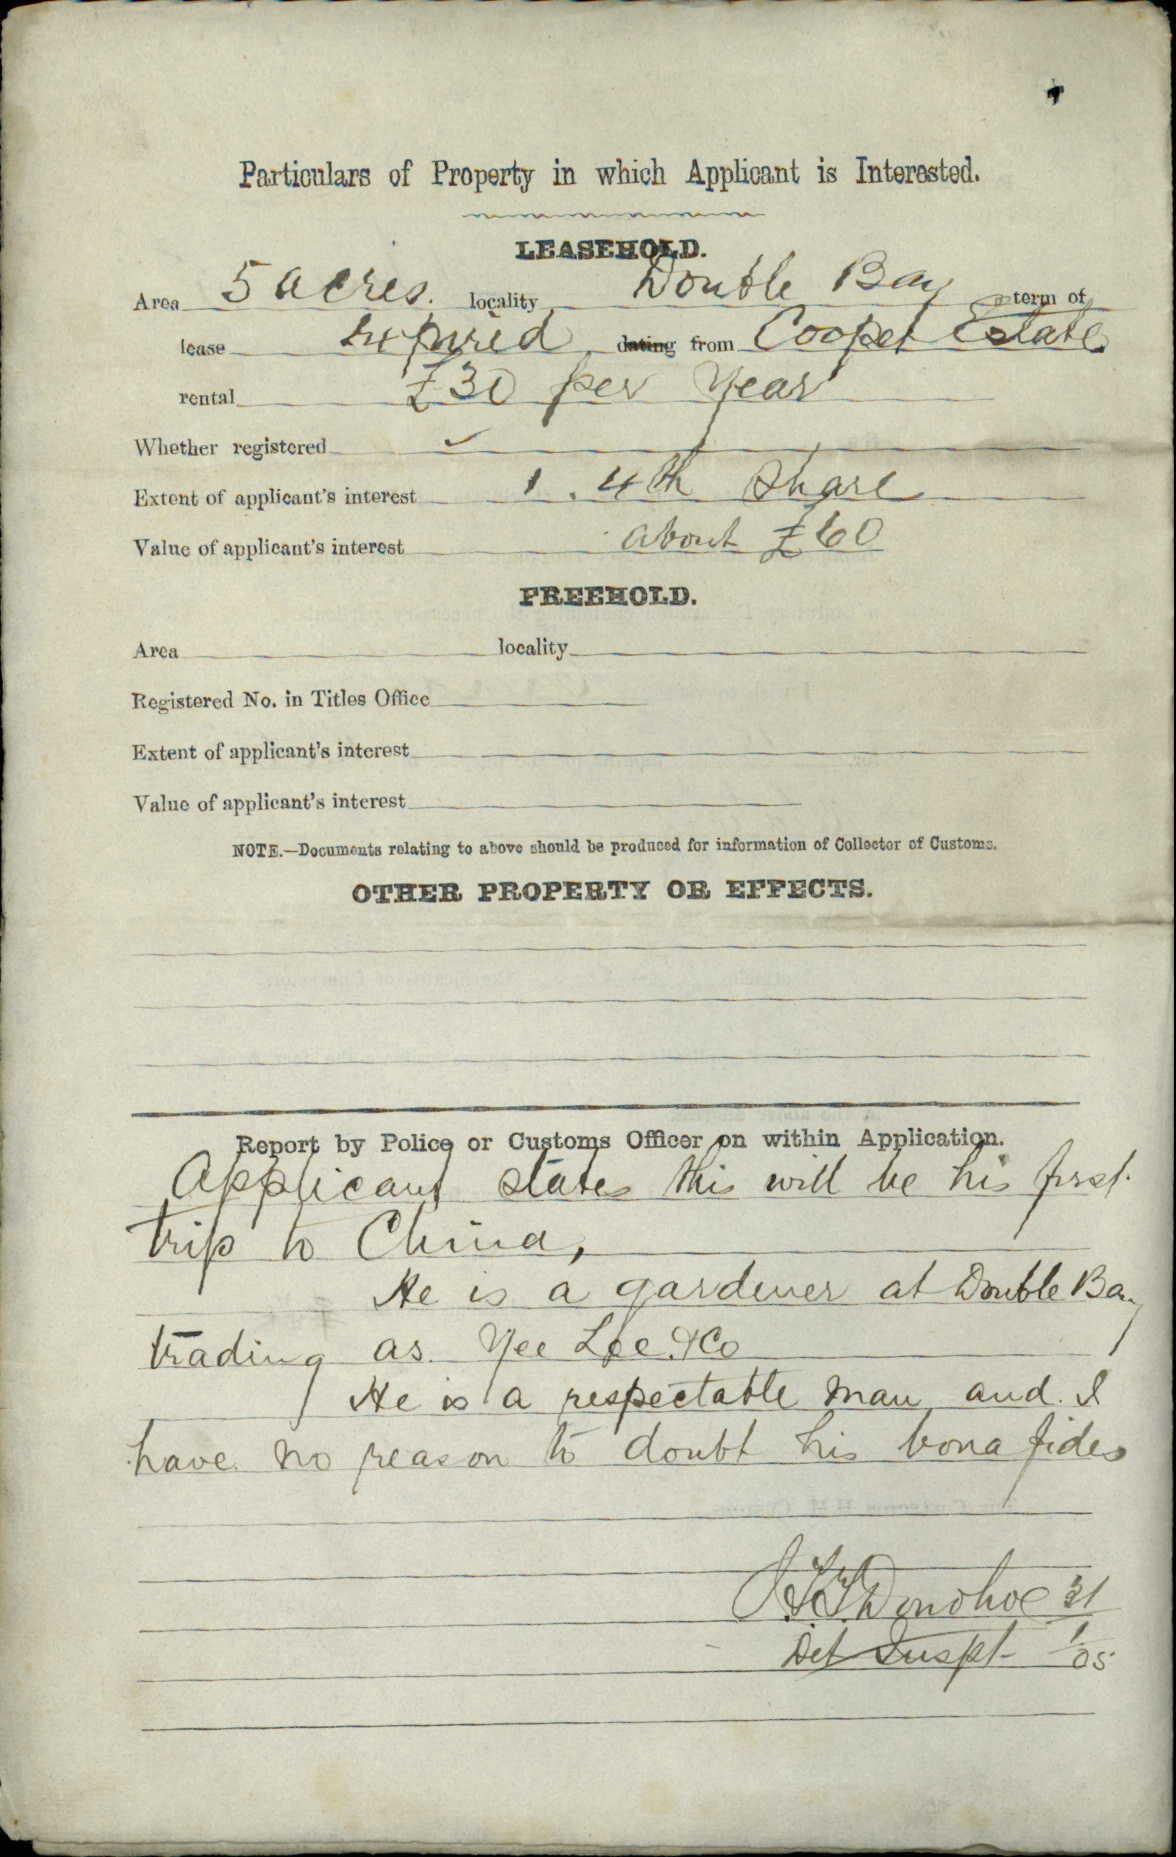 Particulars of Property in which Applicant is Interested.
LEASEHOLD.
Area 5 acres. locality Double Bay term of
lease expired dating from Cooper Estate
rental £30 per Year
Whether registered
Extent of applicant's interest 1. 4th Share
Value of applicant's interest about £60
FREEHOLD.
Area locality
Registered No. in Titles Office
Extent of applicant's interest
Value of applicant's interest
NOTE.—Documents relating to above should be produced for information of Collector of Customs.
OTHER PROPERTY OR EFFECTS.
Report by Police or Customs Officer on within Application.
Applicant states this will be his first
trip to China,
He is a gardener at Double Bay
trading as Yee Lee & Co
He is a respectable man and I
have no reason to doubt his bona fides
Donohoe 31
Det Inspt 1/05